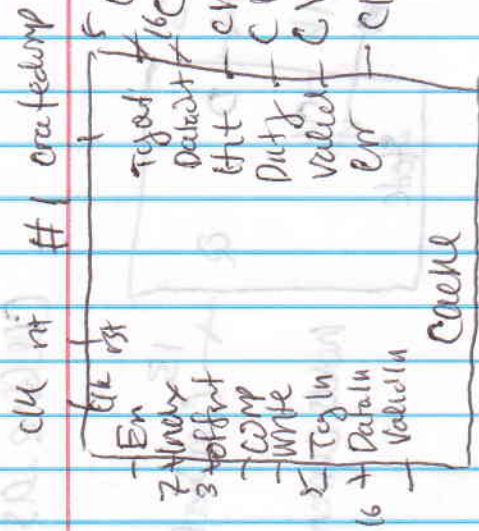 clk rst #1 createdump
clk rst
En
7 Index
3 offset
comp
write
5 TagIn
16 DataIn
ValidIn
5 Tagout
16 Dataout
Hit
Dirty
Valid
err
Cache